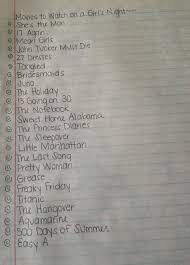 Movies to Watch on a Girl's Night
She's the Man
17 Again
Mean Girls
John Tucker Must Die
27 Dresses
Tangled
Bridesmaids
Juno
The Holiday
13 Going on 30
The Notebook
Sweet Home Alabama
The Princess Diaries
The Sleepover
Little Manhattan
The Last Song
Pretty Woman
Grease
Freaky Friday
Titanic
The Hangover
Aquamarine
500 Days of Summer
Easy A